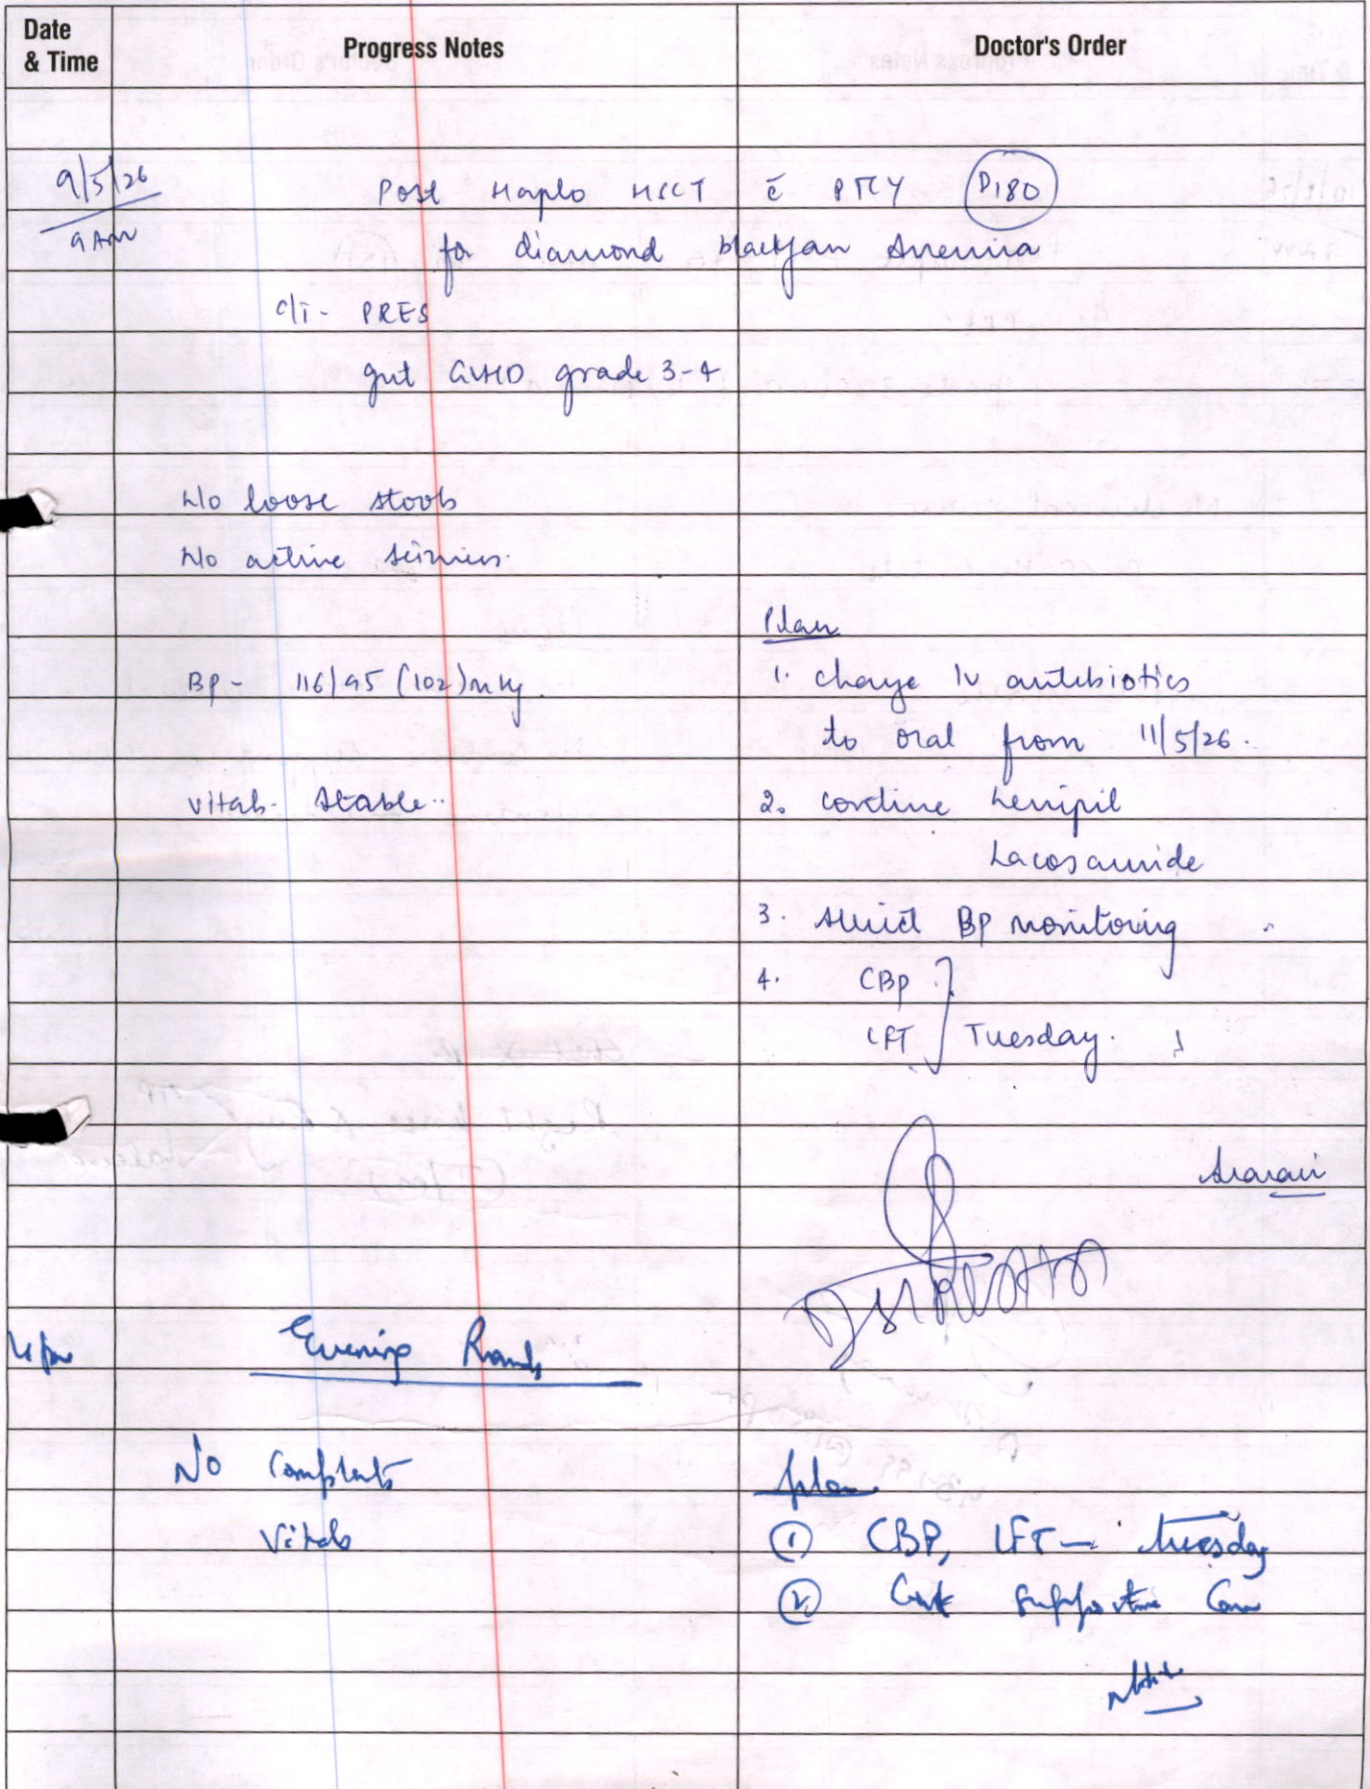 Date & Time
Progress Notes
Doctor's Order
9/5/26
9 AM
Post Haplo HSCT c̄ PTCY D180
for diamond blackfan Anemia
c/i - PRES
gut GVHD grade 3-4
No loose stools
No active
BP - 116/95 (102) mHg.
vitals - stable..
Plan
1. change IV antibiotics
to oral from 11/5/26.
2. continue
Lacosamide
3. strict BP monitoring
4. CBP
LFT } Tuesday.
Evening Rounds
No Complaints
Vitals
plan
① CBP, LFT — tuesday
② Cont supportive Care